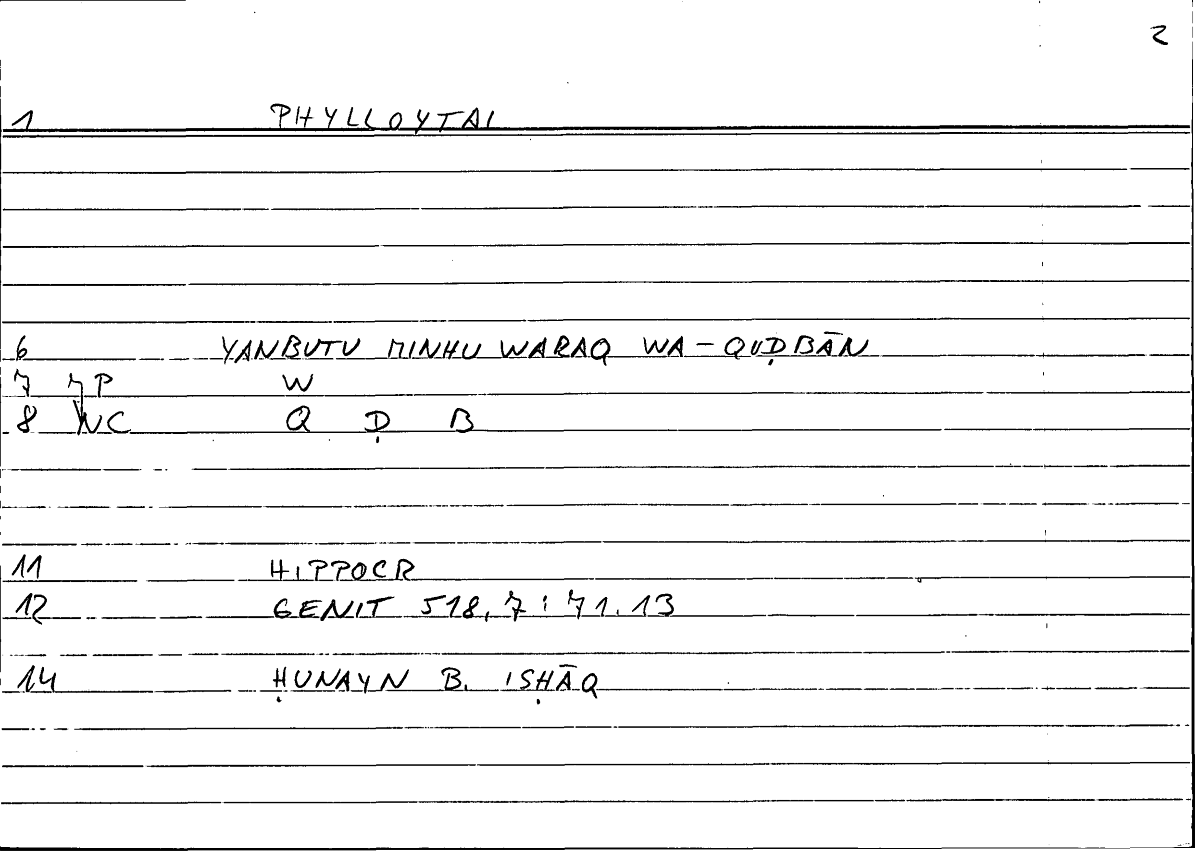 2
1 PHYLLOYTAI
6 YANBUTU MINHU WARAQ WA-QUḌBĀN
7 7P W
8 NC Q Ḍ B
11 HIPPOCR
12 GENIT 518,7:71.13
14 ḤUNAYN B. ISḤĀQ